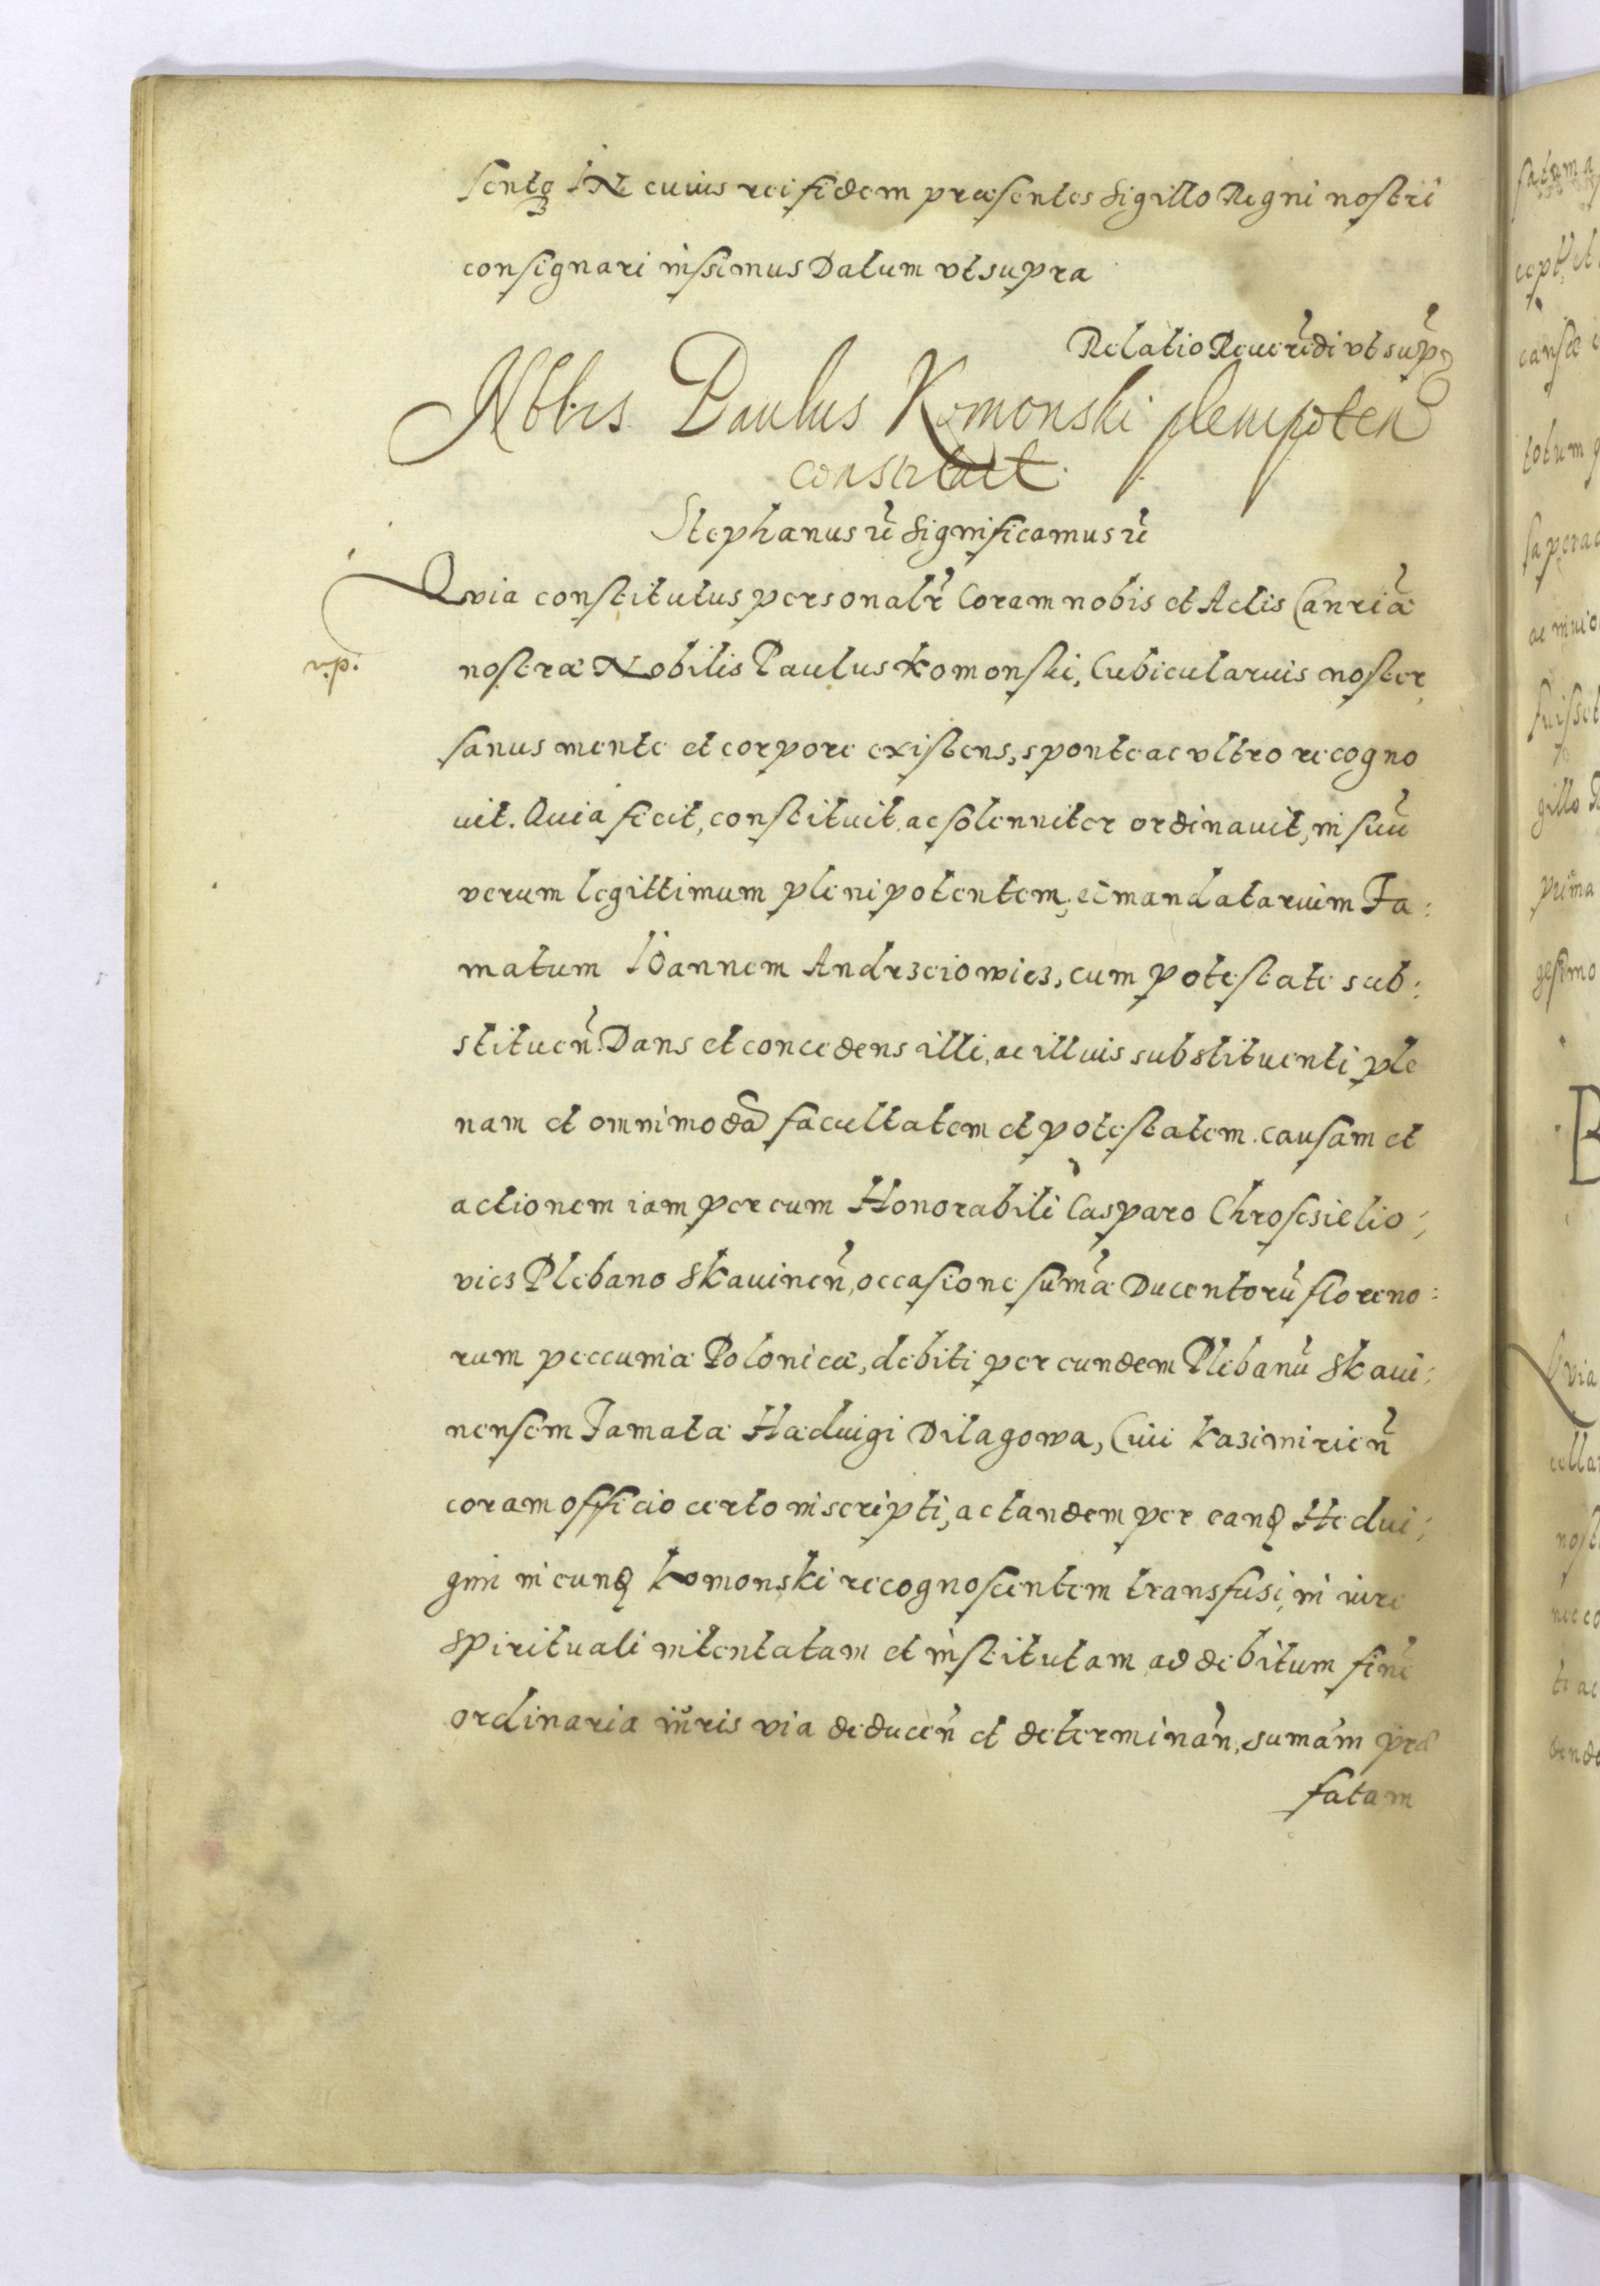 sentę IN cuius rei fidem præsentes Sigillo Regni nostri
consignari iussimus Datum vt supra
Relatio Reuerēdi vt sup̄
Nbbis Paulus Komonski plenipoten
constituit
Stephanus r̄c Significamus r̄c
Qvia constitutus personalr̄ Coram nobis et Actis Canriæ
np.
nostræ Nobilis Paulus Komonski, Cubicularius noster,
sanus mente et corpore existens, sponte ac vltro recogno
uit. Quia fecit, constituit, ac solenniter ordinauit, in suū
verum legittimum plenipotentem, et mandatarium Fa:
matum IOannem Andrzeiowicz, cum potestate sub:
stituen̄. Dans et concedens illi, ac illius substituenti ple
nam et omnimodā facultatem et potestatem. causam et
actionem iam per eum Honorabili Casparo Chroscsielio:
vics Plebano Skauinen̄, occasione sum̄æ Ducentorū floreno:
rum peccuniæ Polonicæ, debiti per eundem Plebanū Skaui:
nensem Famatæ Haduigi Dilagowa, Ciui Kazimirien̄
coram officio certo inscripti, ac tandem per eandē Hedui:
gim in eundē Komonski recognoscentem transfusi, in iure
spirituali intentatam et institutam ad debitum finē
ordinaria iuris via deducen̄ et determinan̄, sumām præ
fatam